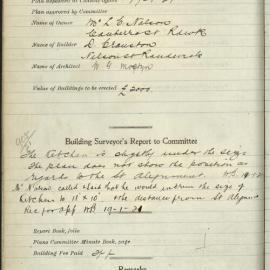 Plan approved by Committee
Name of Owner Mr L. C. Nelson
St Rdwk
Name of Builder D. Cranston
Nelson St Randwick
Name of Architect W. G.
Value of Buildings to be erected £ 2000
Building Surveyor's Report to Committee
The Kitchen is slightly under the size
The plan does not show the position as
regards to the St Alignment.
Mr Nelson called & said that he would increase the size of
Kitchen to 11' x 10' & the distance from St Alignmt
Rec for app 19-1-21
Report Book, folio
Plans Committee Minute Book, page
Building Fee Paid
Remarks